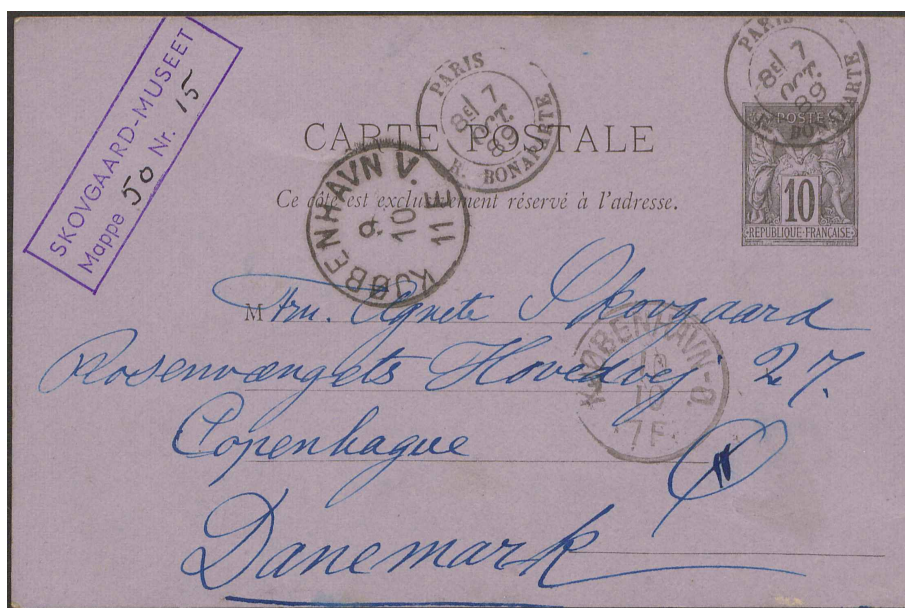 SKOVGAARD-MUSEET
Mappe 50 Nr. 15
PARIS
8E/ 7
OCT.
89
R. BONAPARTE
PARIS
8E/ 7
OCT.
89
R. BONAPARTE
CARTE POSTALE
Ce côté est exclusivement réservé à l'adresse.
POSTES
10
REPUBLIQUE FRANÇAISE
KJØBENHAVN V.
9
10
11 E
M Fru. Agnete Skovgaard
Rosenvængets Hovedvej 27.
Copenhague
Danemark
KJØBENHAVN-Ø.
10
7 F